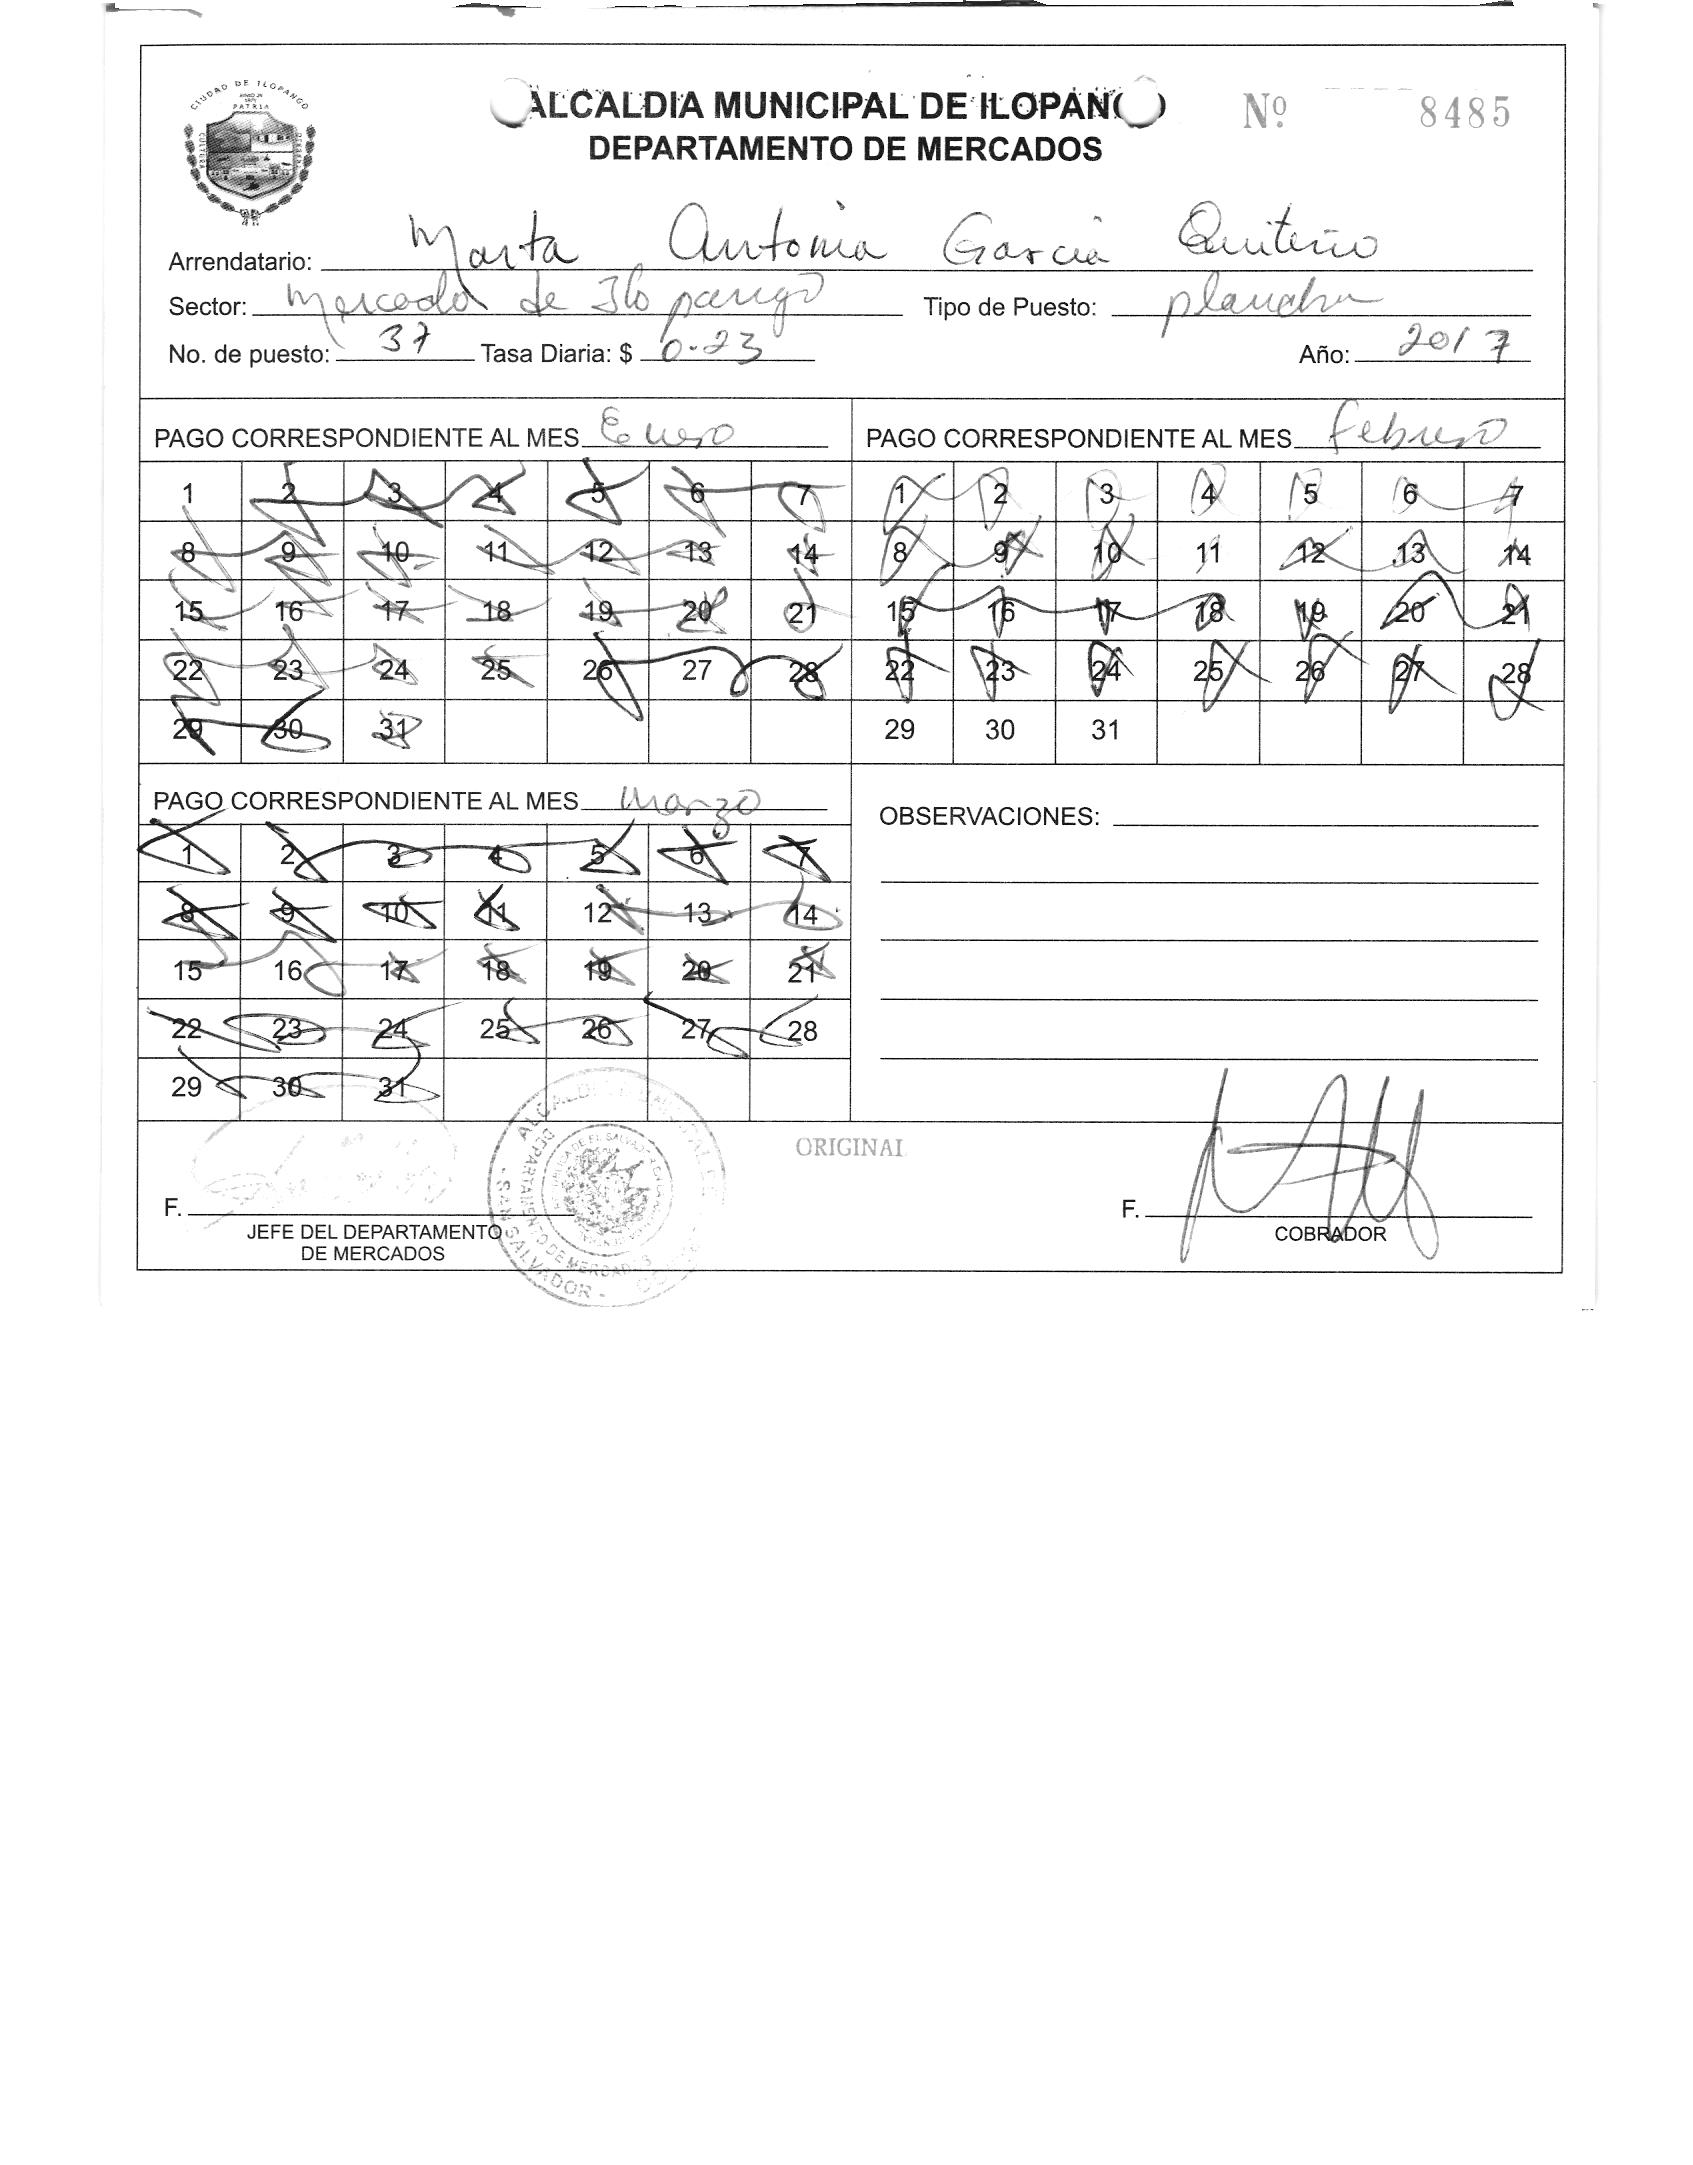 CIUDAD DE ILOPANGO
PATRIA
CULTURA
ALCALDIA MUNICIPAL DE ILOPANGO
Nº 8485
DEPARTAMENTO DE MERCADOS
Arrendatario: Marta Antonia Garcia Quiteño
Sector: Mercado de Ilopango Tipo de Puesto: plancha
No. de puesto: 37 Tasa Diaria: $ 0.23 Año: 2017
PAGO CORRESPONDIENTE AL MES Enero
1 2 3 4 5 6 7
8 9 10 11 12 13 14
15 16 17 18 19 20 21
22 23 24 25 26 27 28
29 30 31
PAGO CORRESPONDIENTE AL MES febrero
1 2 3 4 5 6 7
8 9 10 11 12 13 14
15 16 17 18 19 20 21
22 23 24 25 26 27 28
29 30 31
PAGO CORRESPONDIENTE AL MES marzo
1 2 3 4 5 6 7
8 9 10 11 12 13 14
15 16 17 18 19 20 21
22 23 24 25 26 27 28
29 30 31
OBSERVACIONES:
ORIGINAL
F.
JEFE DEL DEPARTAMENTO
DE MERCADOS
DEPARTAMENTO DE MERCADOS
SAN SALVADOR
F.
COBRADOR